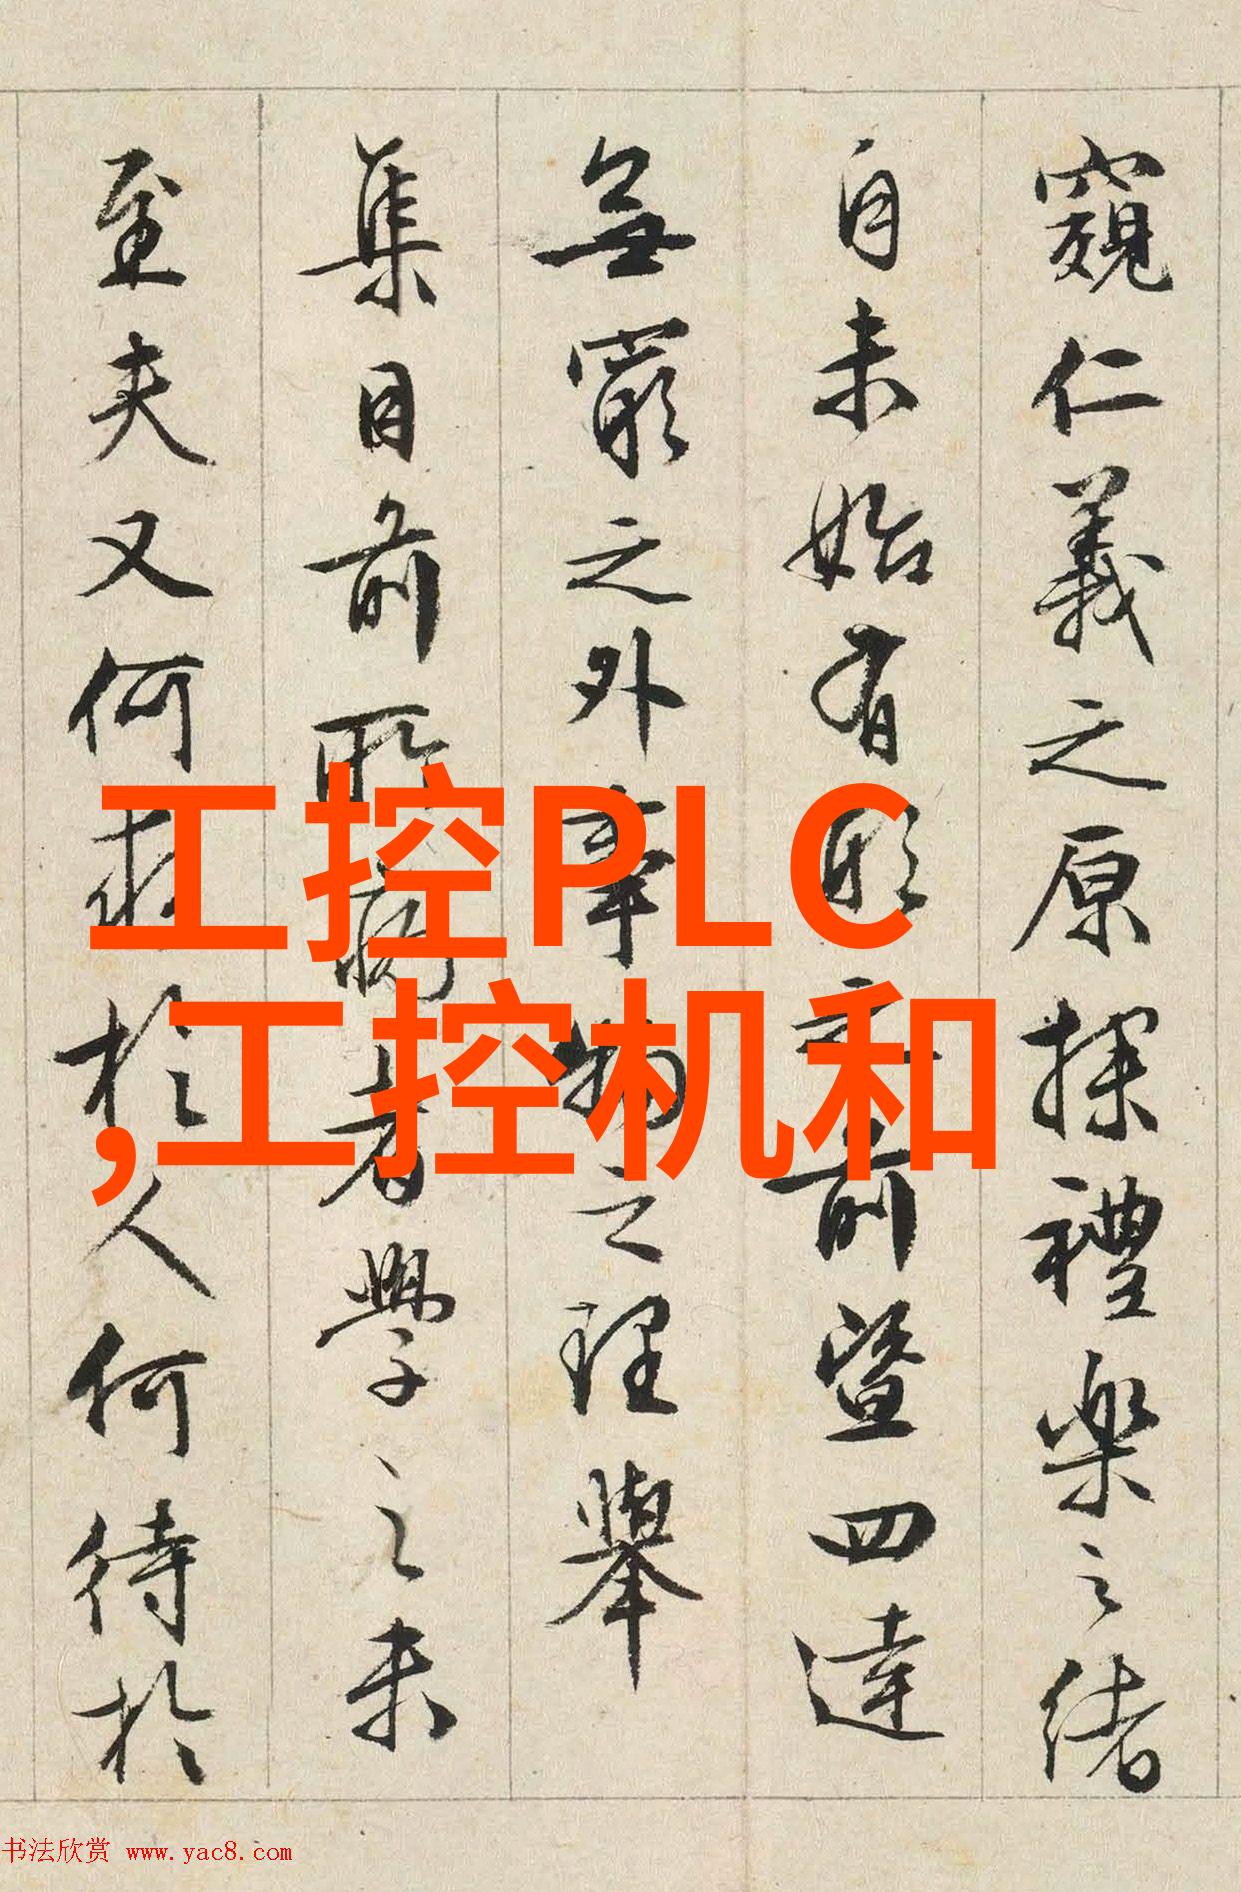 窺仁義之原探禮樂之緒
自未始有形之前暨四達
無窮之外事物之理舉
集目前所病者學之未
至夫又何求於人何待於
工控PLC
,工控机和
书法欣赏 www.yac8.com